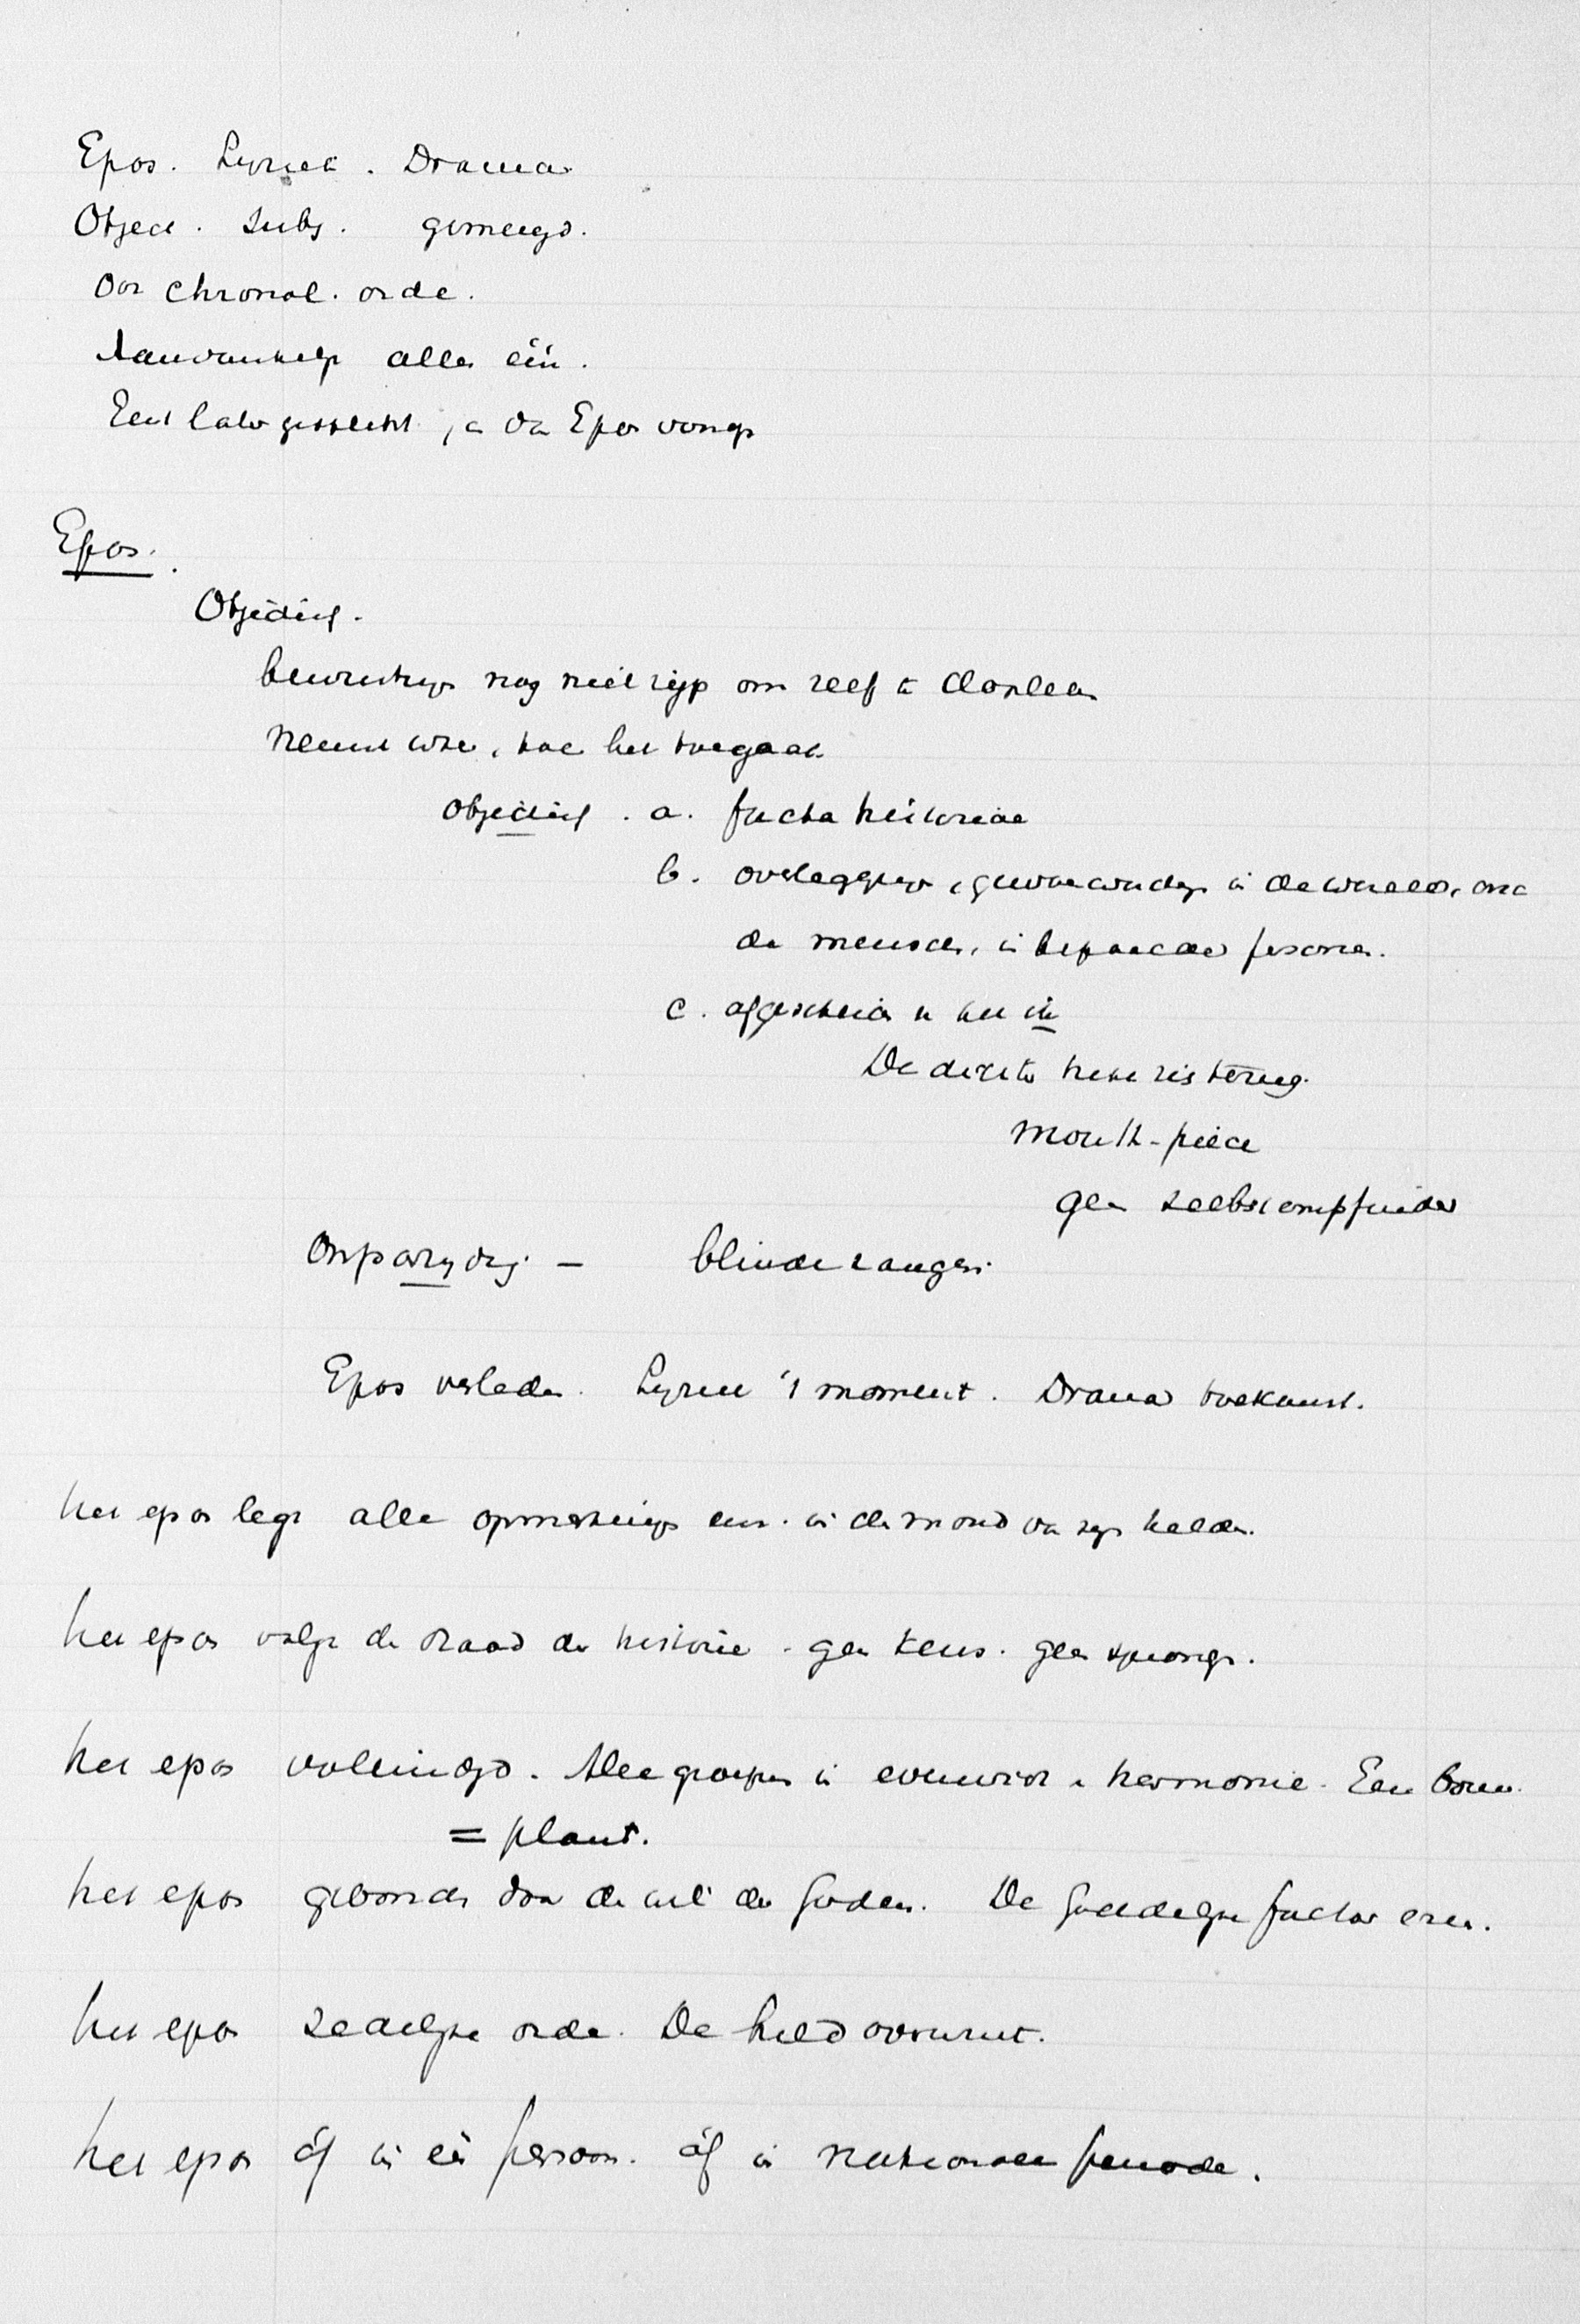 Epos. Lyriek. Drama
Object. Subj. gemengd.
Ook chronol. orde.
Aanvankelijk alles één.
Eerst later gesplitst, en dan Epos voorop
Epos.
Objectief.
bewustzijn nog niet rijp om zelf te
Neemt waar, hoe het toegaat
Objectief. a. facta historiae
b. overleggingen, gewaarwordingen in de wereld, onder
de menschen, in bepaalde personen.
c. afgescheiden v. het ik
De dichter trekt zich terug.
Mouth-piece
geen Selbstempfinder
Onpartijdig — blinde zanger.
Epos verleden. Lyriek 't moment. Drama toekomst.
Het epos legt alle opmerkingen enz. in den mond van zijn helden.
Het epos volgt de draad der historie. geen keus. geen sprongen.
Het epos voleindigd. Alle groepen in evenwicht, harmonie. Een boom
= plant.
Het epos gebonden door de wil der Goden. De Goddelijke factor erin.
Het epos zedelijke orde. De held overwint.
Het epos óf in één persoon. óf in nationale periode.